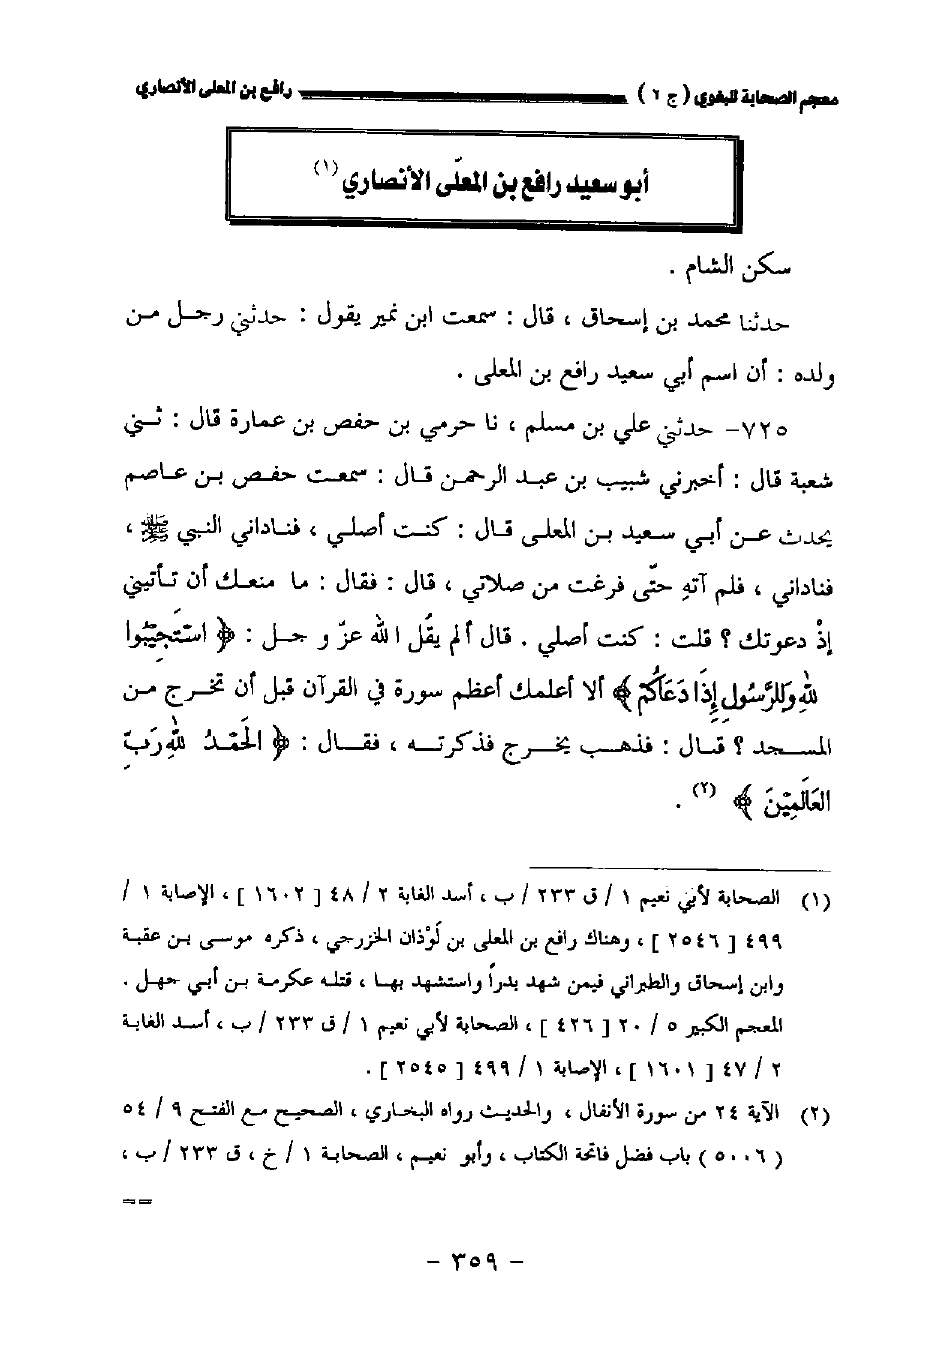 معجم الصحابة للبغوي ( ج ٢ ) رافع بن المعلى الأنصاري
أبو سعيد رافع بن المعلّى الأنصاري (١)
سكن الشام .
حدثنا محمد بن إسحاق ، قال : سمعت ابن نمير يقول : حدثني رجل من
ولده : أن اسم أبي سعيد رافع بن المعلى .
٧٢٥- حدثني علي بن مسلم ، نا حرمي بن حفص بن عمارة قال : ثني
شعبة قال : أخبرني شبيب بن عبد الرحمن قال : سمعت حفص بن عاصم
يحدث عن أبي سعيد بن المعلى قال : كنت أصلي ، فناداني النبي ﷺ ،
فناداني ، فلم آتهِ حتّى فرغت من صلاتي ، قال : فقال : ما منعك أن تأتيني
إذْ دعوتك ؟ قلت : كنت أصلي . قال ألم يقُل الله عزّ و جل : ﴿ اسْتَجِيْبُوا
للهِ وَلِلرَّسُولِ إِذَا دَعَاكُمْ ﴾ ألا أعلمك أعظم سورة في القرآن قبل أن تخرج من
المسجد ؟ قال : فذهب يخرج فذكرته ، فقال : ﴿ الحَمْدُ للهِ رَبِّ
العَالَمِيْنَ ﴾ (٢) .
(١) الصحابة لأبي نعيم ١ / ق ٢٣٣ / ب ، أسد الغابة ٢ / ٤٨ [ ١٦٠٢ ] ، الإصابة ١ /
٤٩٩ [ ٢٥٤٦ ] ، وهناك رافع بن المعلى بن لَوْذان الخزرجي ، ذكره موسى بن عقبة
وابن إسحاق والطبراني فيمن شهد بدراً واستشهد بها ، قتله عكرمة بن أبي جهل .
المعجم الكبير ٥ / ٢٠ [ ٤٢٦ ] ، الصحابة لأبي نعيم ١ / ق ٢٣٣ / ب ، أسد الغابة
٢ / ٤٧ [ ١٦٠١ ] ، الإصابة ١ / ٤٩٩ [ ٢٥٤٥ ] .
(٢) الآية ٢٤ من سورة الأنفال ، والحديث رواه البخاري ، الصحيح مع الفتح ٩ / ٥٤
( ٥٠٠٦ ) باب فضل فاتحة الكتاب ، وأبو نعيم ، الصحابة ١ / خ ، ق ٢٣٣ / ب ،
==
- ٣٥٩ -